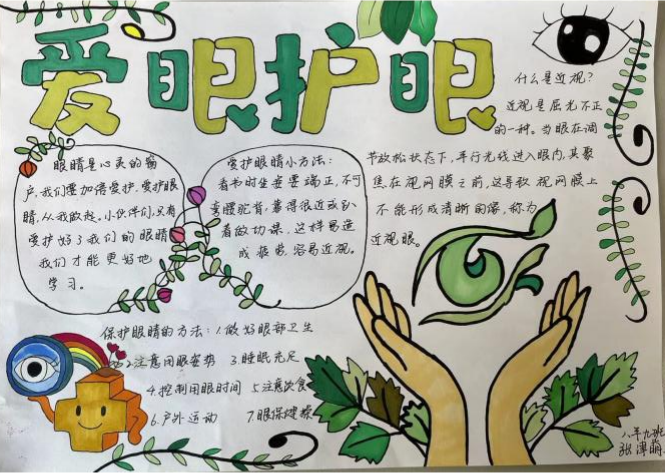 爱眼护眼
什么是近视?
近视是屈光不正
的一种。当眼在调
节放松状态下,平行光线进入眼内,其聚
焦在视网膜之前,这导致视网膜上
不能形成清晰的像,称为
近视眼。
眼睛是心灵的窗
户,我们要加倍爱护,爱护眼
睛,从我做起,小伙伴们,只有
爱护好了我们的眼睛
我们才能更好地
学习。
爱护眼睛小方法:
看书时坐姿要端正,不可
弯腰驼背,靠得很近或趴
着做功课,这样易造
成疲劳,容易近视。
保护眼睛的方法:1.做好眼部卫生
2.注意用眼姿势 3睡眠充足
4.控制用眼时间 5注意饮食
6.户外运动 7眼保健操
八年九班
张萌